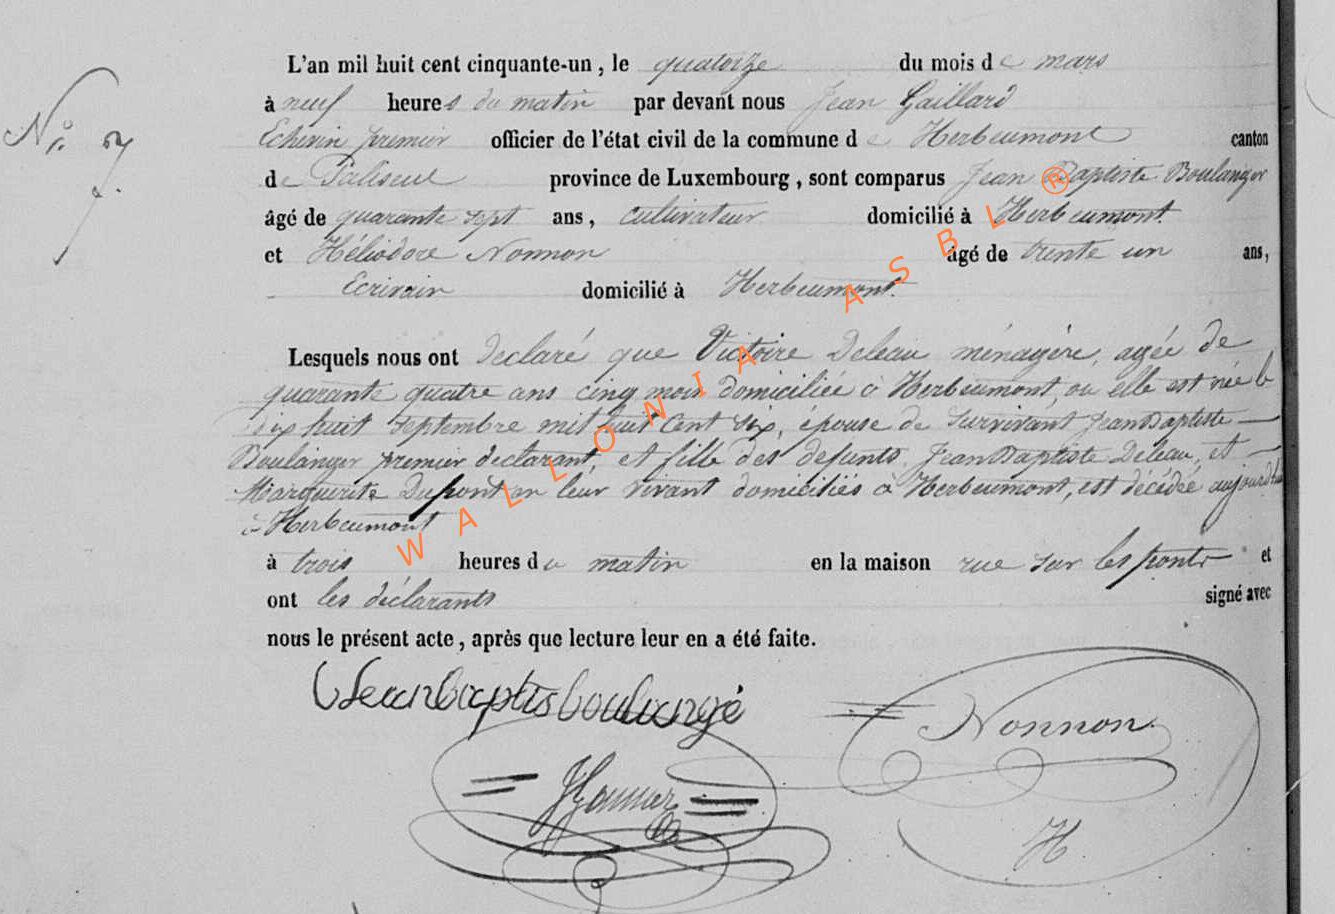 L'an mil huit cent cinquante-un, le quatorze du mois de mars
N° 7 à neuf heures du matin par devant nous Jean Gaillard
Echevin premier officier de l'état civil de la commune de Herbeumont canton
de Paliseul province de Luxembourg, sont comparus Jean Baptiste Boulanger
âgé de quarante sept ans, cultivateur domicilié à Herbeumont
et Héliodore Nonnon âgé de trente un ans,
Ecrivain domicilié à Herbeumont.
Lesquels nous ont declaré que Victoire Deleau ménagère, agée de
quarante quatre ans cinq mois domiciliée à Herbeumont, où elle est née le
dix huit septembre mil huit cent six, épouse de survivant Jean Baptiste
Boulanger premier declarant, et fille des defunts Jean Baptiste Deleau, et
Marguerite Dupont en leur vivant domiciliés à Herbeumont, est décédée aujourd'hui
à Herbeumont
à trois heures du matin en la maison rue sur les ponts et
ont les déclarants signé avec
nous le présent acte, après que lecture leur en a été faite.
Jean baptis boulangé
Nonnon
H
WALLONIA ASBL ®